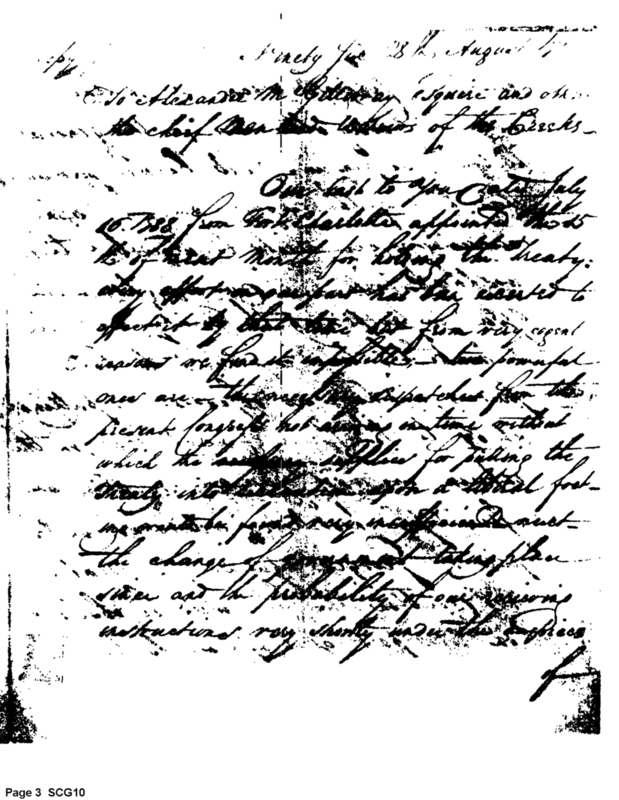 Ninety Six 28th August
To Alexander McGillivray esquire and
the chief Men and warriors of the Creeks
Our last to You dated July
16. 1788 from Fort Charlotte appointed the 15
th of next Month for holding the Treaty.
every effort on our part has been exerted to
effect it by that time but from very cogent
reasons we find it impossible. two powerful
ones are the necessary dispatches from the
present Congress not arriving in time without
which the supplies for putting the
Treaty into execution upon a liberal foot-
ing would be found very next
the change of government taking place
since and the probability of our receiving
instructions very shortly under the auspices
of
Page 3 SCG10